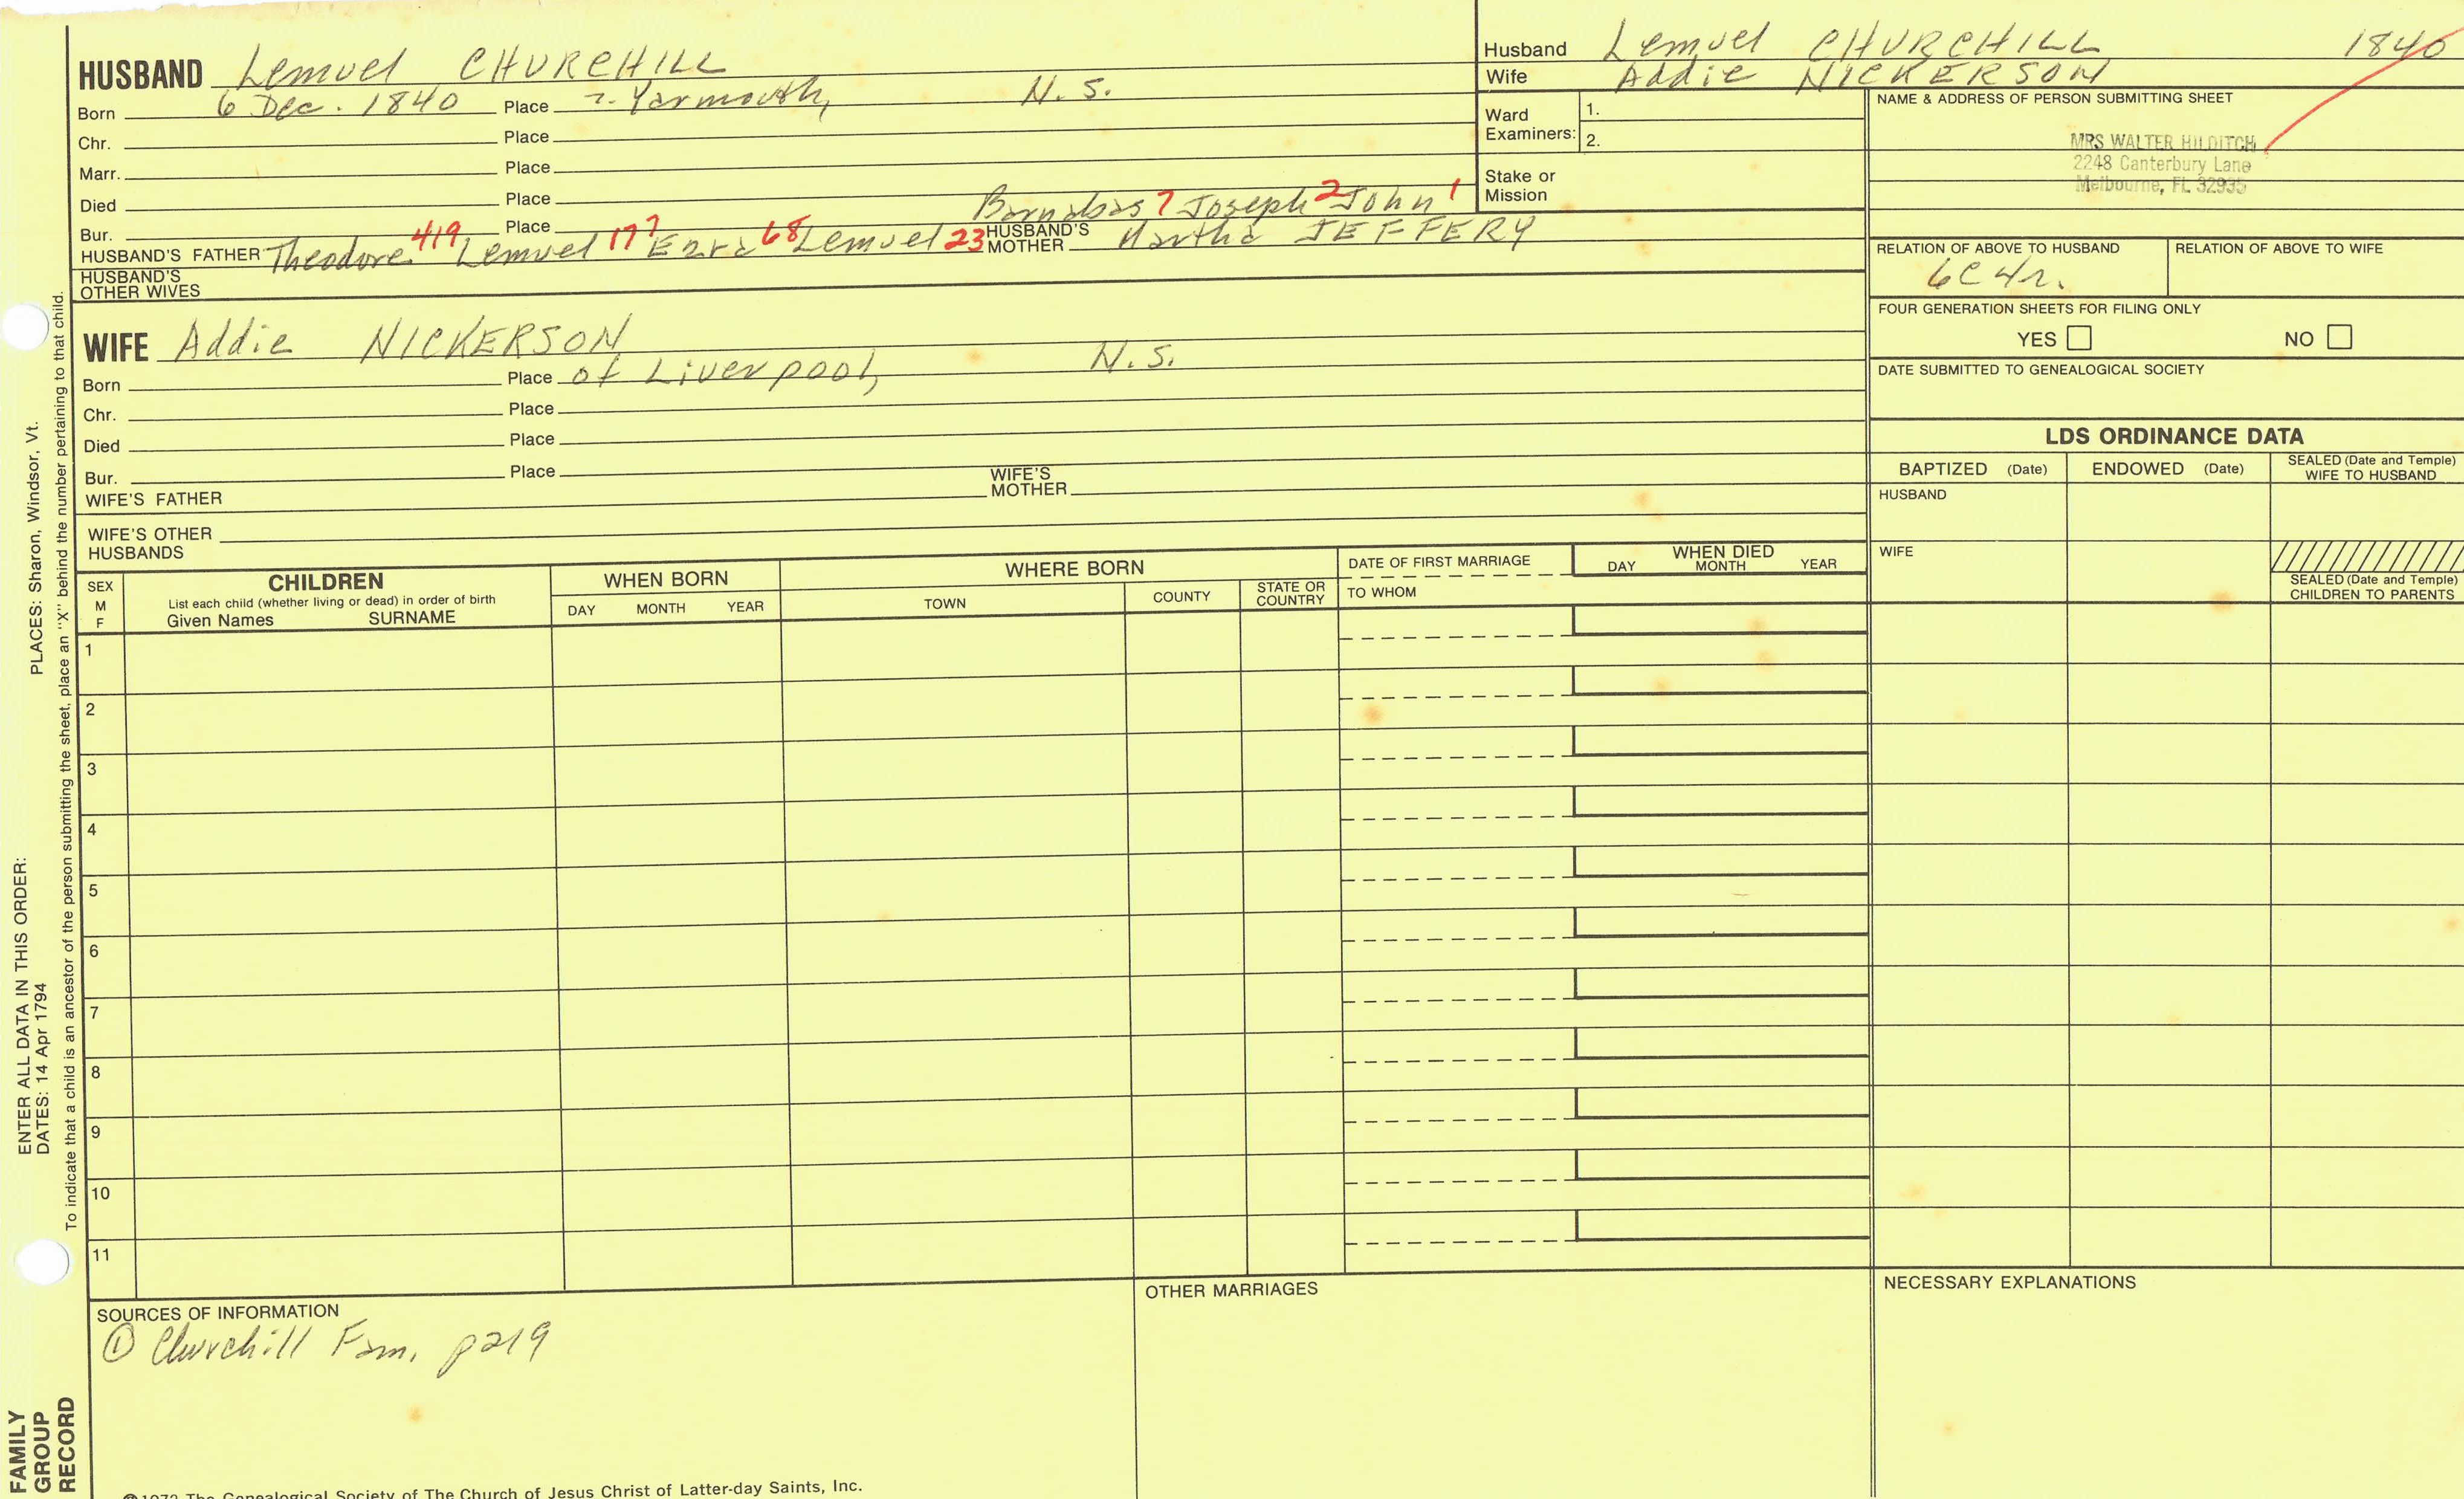 HUSBAND Lemuel CHURCHILL
Born 6 Dec. 1840 Place ?. Yarmouth, N.S.
Chr. Place
Marr. Place
Died Place
Barnabas 7 Joseph 2 John 1
Bur. Place
HUSBAND'S FATHER Theodore 419 Lemuel 177 Ezra 68 Lemuel 23 HUSBAND'S MOTHER Martha JEFFERY
HUSBAND'S OTHER WIVES
WIFE Addie NICKERSON
Born Place of Liverpool, N.S.
Chr. Place
Died Place
Bur. Place
WIFE'S FATHER WIFE'S MOTHER
WIFE'S OTHER HUSBANDS
Husband Lemuel CHURCHILL 1840
Wife Addie NICKERSON
Ward Examiners: 1.
2.
Stake or Mission
NAME & ADDRESS OF PERSON SUBMITTING SHEET
MRS WALTER HILDITCH
2248 Canterbury Lane
Melbourne, FL 32935
RELATION OF ABOVE TO HUSBAND RELATION OF ABOVE TO WIFE
6C4r.
FOUR GENERATION SHEETS FOR FILING ONLY
YES NO
DATE SUBMITTED TO GENEALOGICAL SOCIETY
LDS ORDINANCE DATA
BAPTIZED (Date) ENDOWED (Date) SEALED (Date and Temple) WIFE TO HUSBAND
HUSBAND
WIFE
SEALED (Date and Temple) CHILDREN TO PARENTS
SEX M F
CHILDREN
List each child (whether living or dead) in order of birth
Given Names SURNAME
WHEN BORN
DAY MONTH YEAR
WHERE BORN
TOWN COUNTY STATE OR COUNTRY
DATE OF FIRST MARRIAGE
TO WHOM
WHEN DIED
DAY MONTH YEAR
1
2
3
4
5
6
7
8
9
10
11
SOURCES OF INFORMATION
① Churchill Fam. p219
OTHER MARRIAGES
NECESSARY EXPLANATIONS
©1972 The Genealogical Society of The Church of Jesus Christ of Latter-day Saints, Inc.
FAMILY GROUP RECORD
ENTER ALL DATA IN THIS ORDER:
DATES: 14 Apr 1794 PLACES: Sharon, Windsor, Vt.
To indicate that a child is an ancestor of the person submitting the sheet, place an "X" behind the number pertaining to that child.